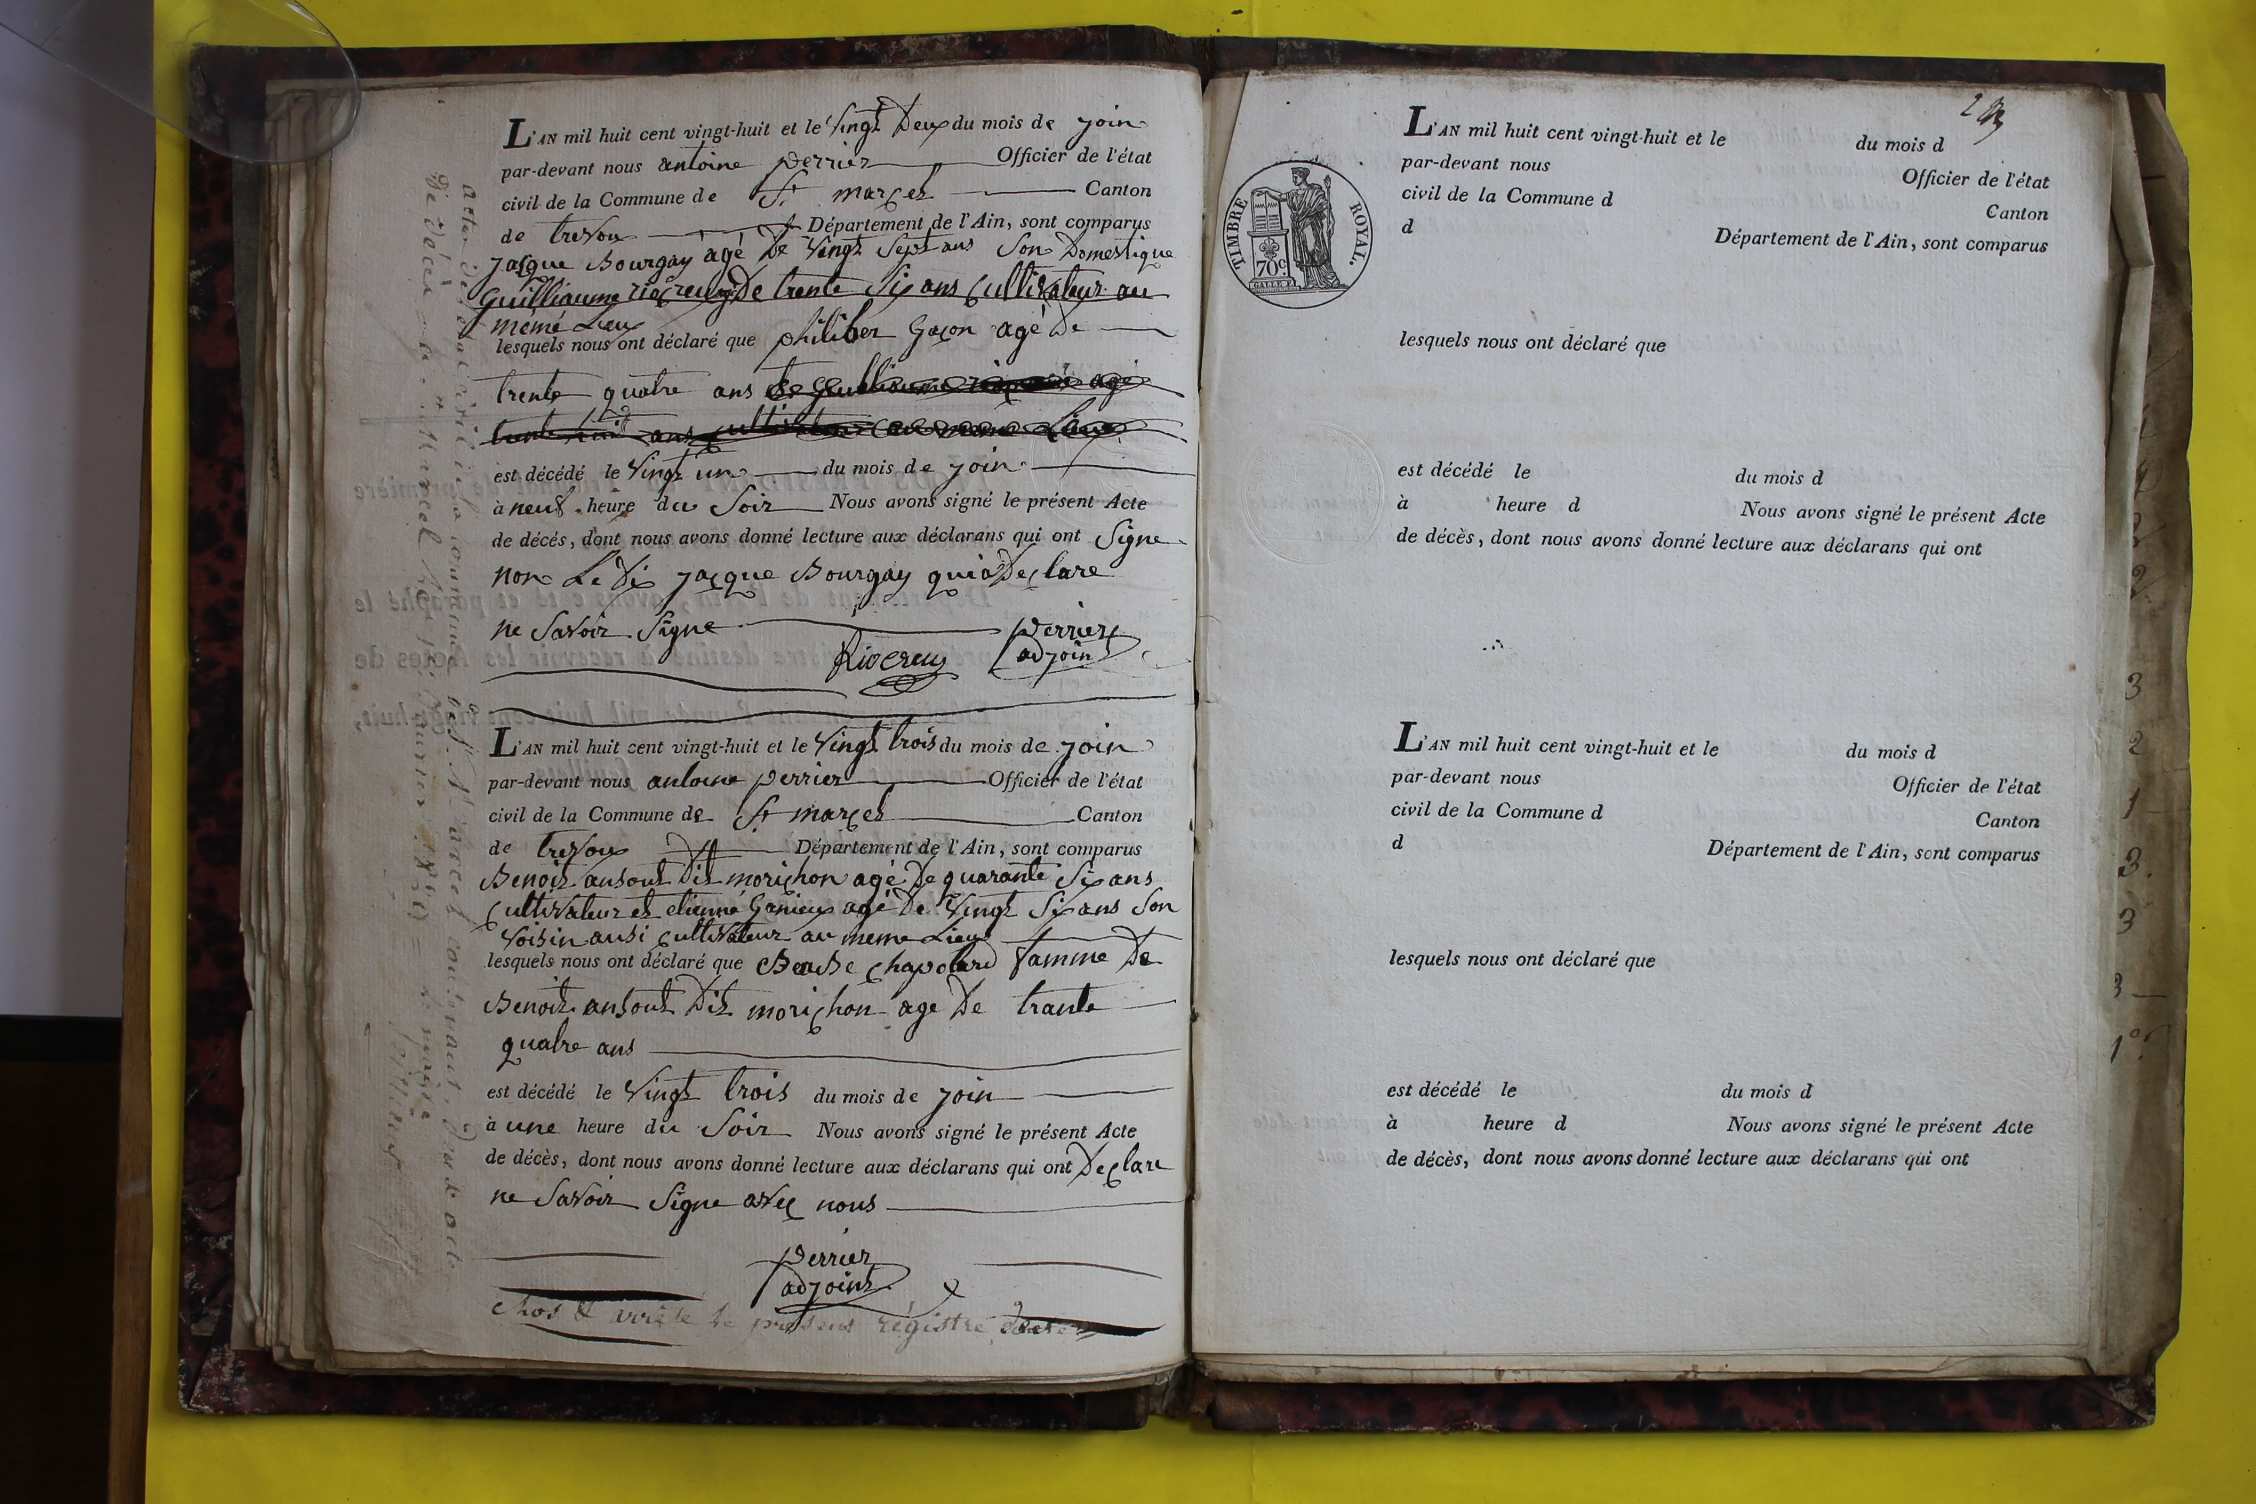 L'AN mil huit cent vingt-huit et le Vingt Deux du mois de join
par-devant nous antoine perrier Officier de l'état
civil de la Commune de St marcel Canton
de trevou Département de l'Ain, sont comparus
jasque Bourgay agé De Vingt Sept ans Son Domestique
Guilliaume riocreux De trente Six ans cultivateur au
mémé Lieu
lesquels nous ont déclaré que philiber Gaçon agé De
trente quatre ans
est décédé le Vingt un du mois de join
à neuf heure du Soir Nous avons signé le présent Acte
de décès, dont nous avons donné lecture aux déclarans qui ont Signe
non Le Di jacque Bourgay qui a Declare
ne Savoir Signe
perrier
Riocreux adjoint
L'AN mil huit cent vingt-huit et le Vingt trois du mois de join
par-devant nous antoine perrier Officier de l'état
civil de la Commune de St marcel Canton
de trevou Département de l'Ain, sont comparus
Benoit ansout Dit morichon agé De quarante Six ans
cultivateur et etienné Ganieux agé De Vingt Six ans Son
Voisin ausi cultivateur au meme Lieu
lesquels nous ont déclaré que chapolard famme De
Benoit ansout Dit morichon age De trante
quatre ans
est décédé le Vingt trois du mois de join
à une heure du Soir Nous avons signé le présent Acte
de décès, dont nous avons donné lecture aux déclarans qui ont Declare
ne Savoir Signe avec nous
perrier
adjoint
Clos & arrêté le présent régistre
TIMBRE ROYAL.
70c
L'AN mil huit cent vingt-huit et le du mois d
par-devant nous Officier de l'état
civil de la Commune d Canton
d Département de l'Ain, sont comparus
lesquels nous ont déclaré que
est décédé le du mois d
à heure d Nous avons signé le présent Acte
de décès, dont nous avons donné lecture aux déclarans qui ont
L'AN mil huit cent vingt-huit et le du mois d
par-devant nous Officier de l'état
civil de la Commune d Canton
d Département de l'Ain, sont comparus
lesquels nous ont déclaré que
est décédé le du mois d
à heure d Nous avons signé le présent Acte
de décès, dont nous avons donné lecture aux déclarans qui ont
3
2
1
3.
3
3